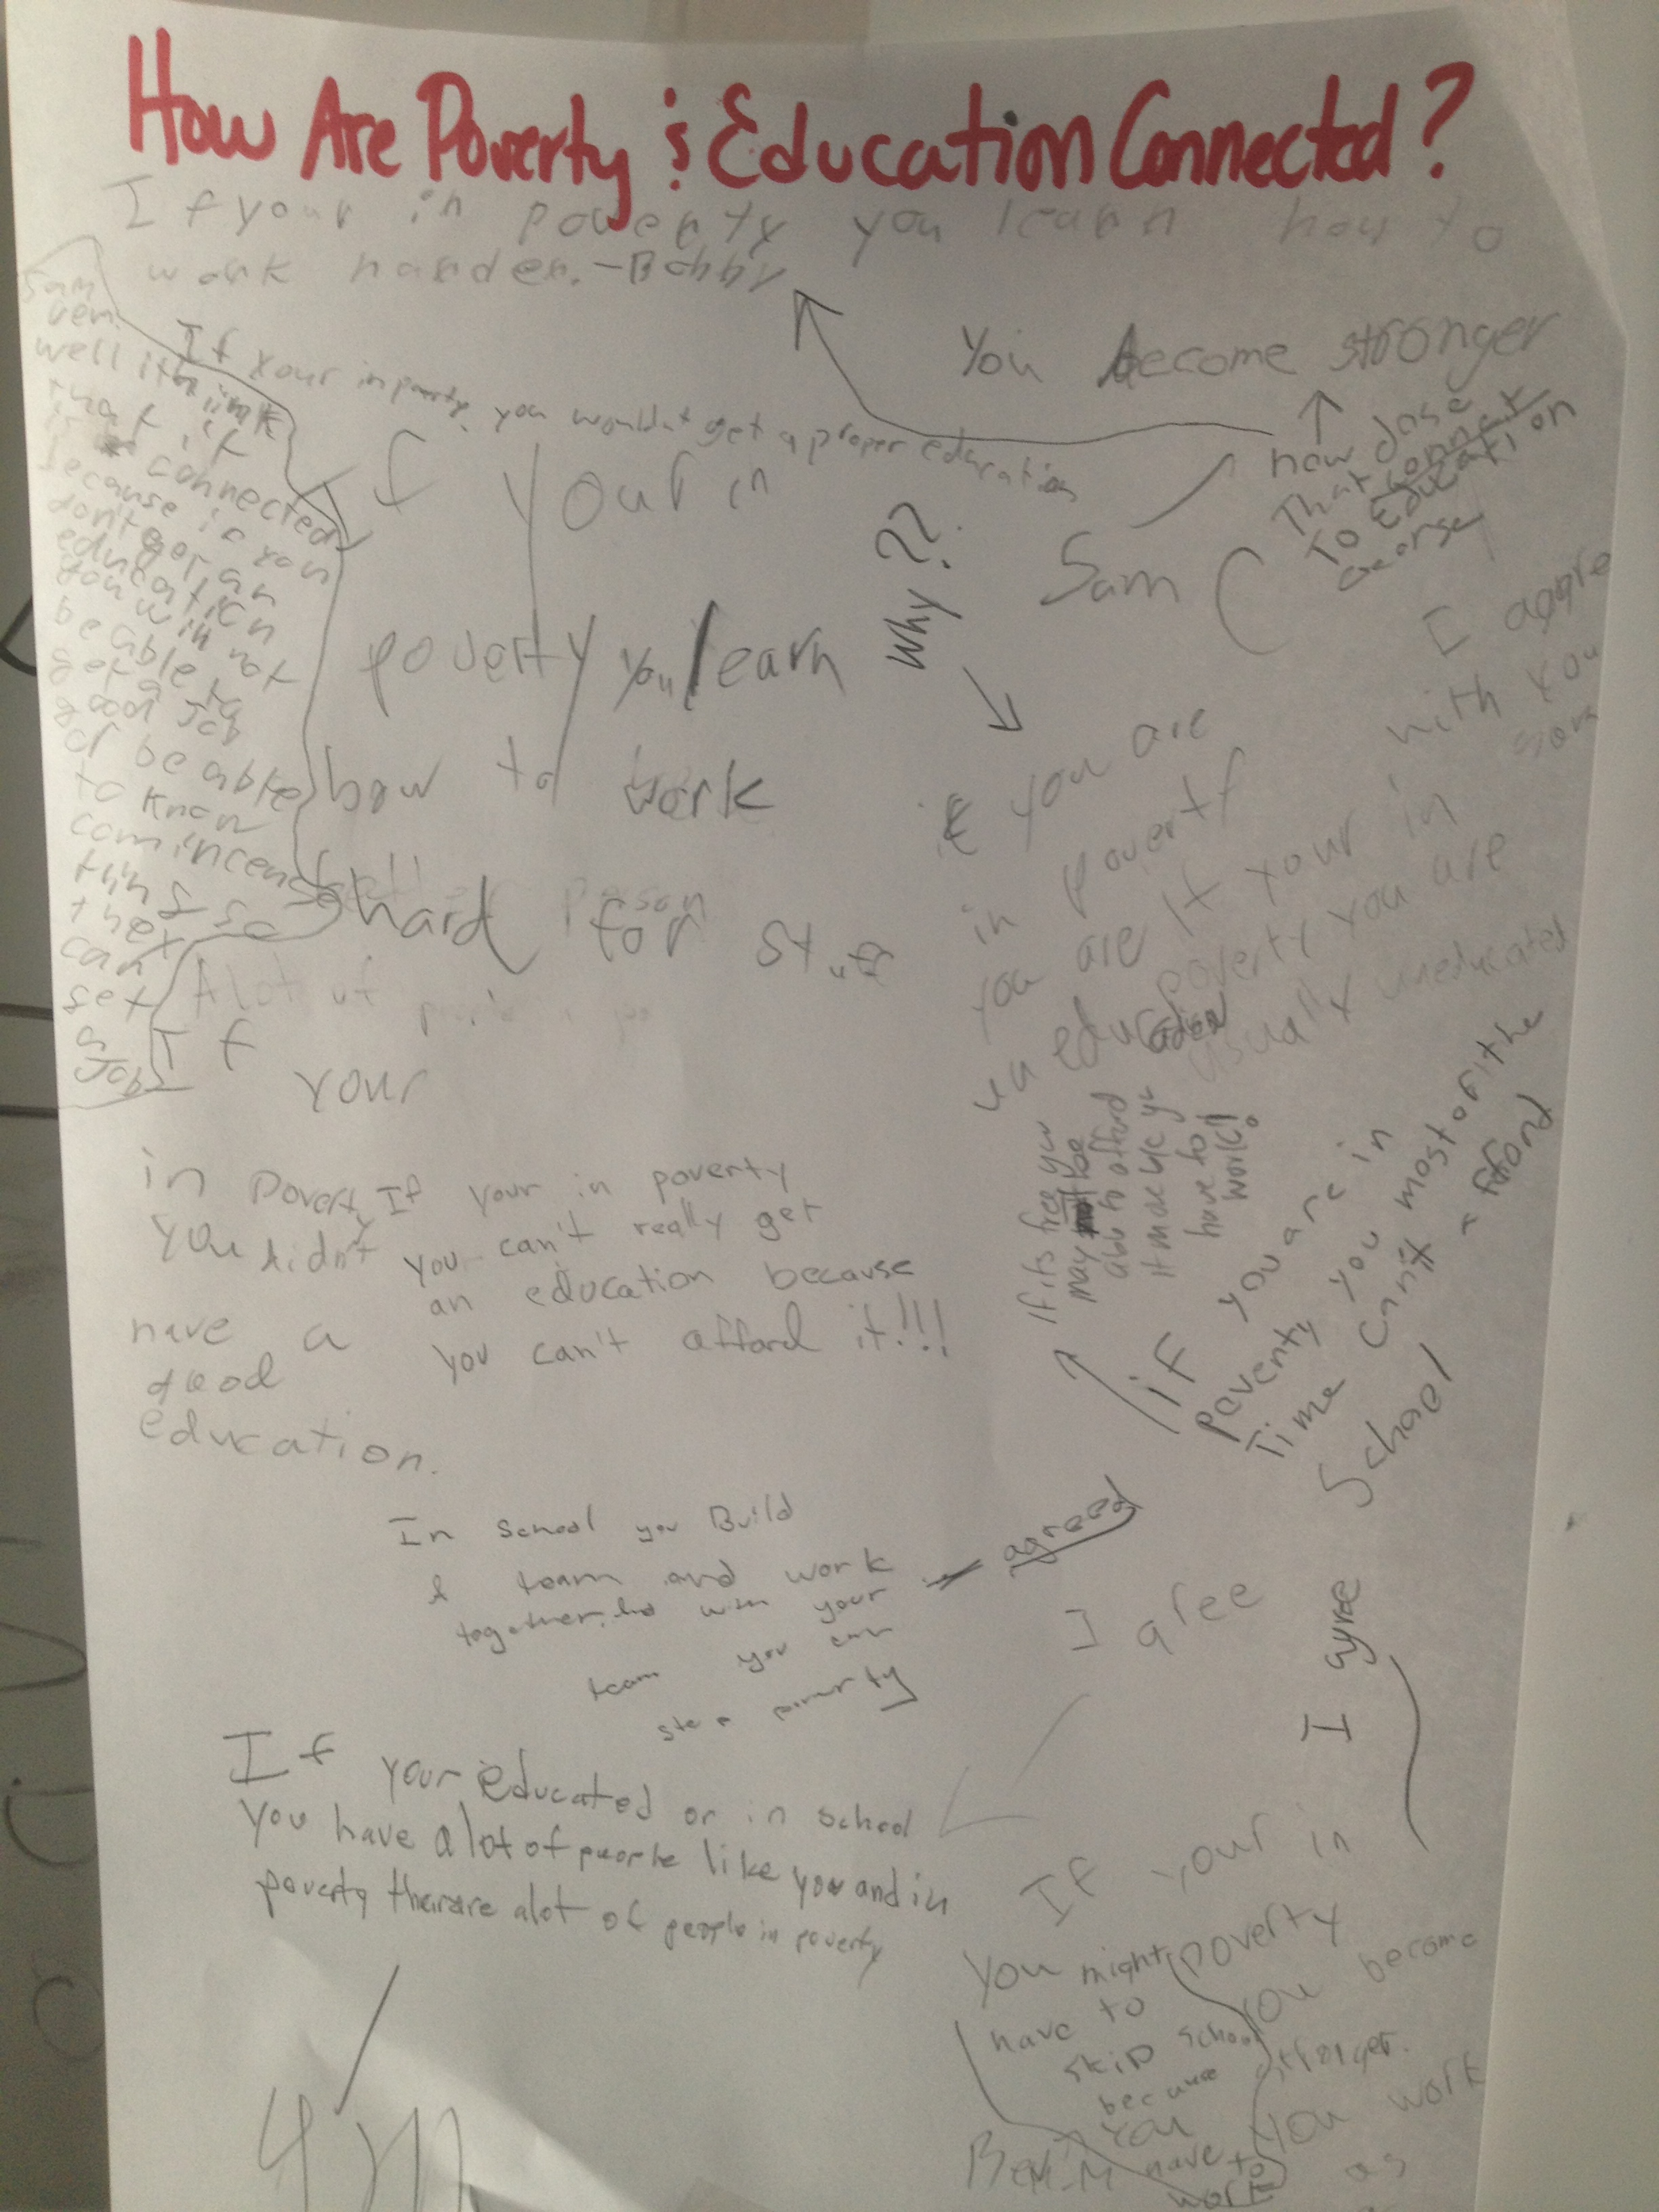 How Are Poverty & Education Connected?
If your in poverty you learn how to
work harder. - Bobby
You become stronger
how dose
That connect
To Education
George
Sam
Sam
well i think
that it
is connected
because if you
don't get an
education
you will not
be able to
get a
good Job
or be able
to know
things so
they
can't
get
a
Job
If your in poverty, you wouldn't get a proper education
If your in
poverty you learn
how to work
hard for stuff
Why??
if you are
in poverty
you are
un educated
I aggre
with you
If your in
poverty you are
usually uneducated
person
Alot of
If
your
in Poverty
you didnt
have a
good
education.
If your in poverty
you can't really get
an education because
you can't afford it!!!
If its free you
may be
able to afford
it
have to
work!
if you are in
poverty you most of the
Time can't afford
School
In school you Build
A team and work
together. with your
team you can
stop poverty
agreed
I agree
I agree
If your educated or in school
you have a lot of people like you and in
poverty there are alot of people in poverty
If your in
poverty
you become
stronger.
you work
as
You might
have to
skip school
because
you
have to
work